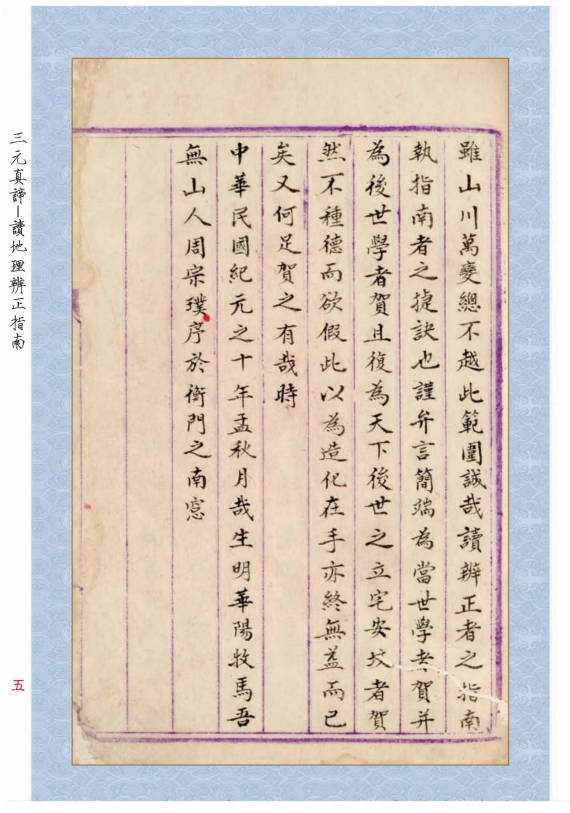 雖山川萬變總不越此範圍誠哉讀辨正者之指南
執指南者之捷訣也謹弁言簡端為當世學者賀并
為後世學者賀且復為天下後世之立宅安坟者賀
然不種德而欲假此以為造化在手亦終無益而已
矣又何足賀之有哉時
中華民國紀元之十年孟秋月哉生明華陽牧馬吾
無山人周宗璞序於衡門之南窓
三元真諦—讀地理辨正指南
五